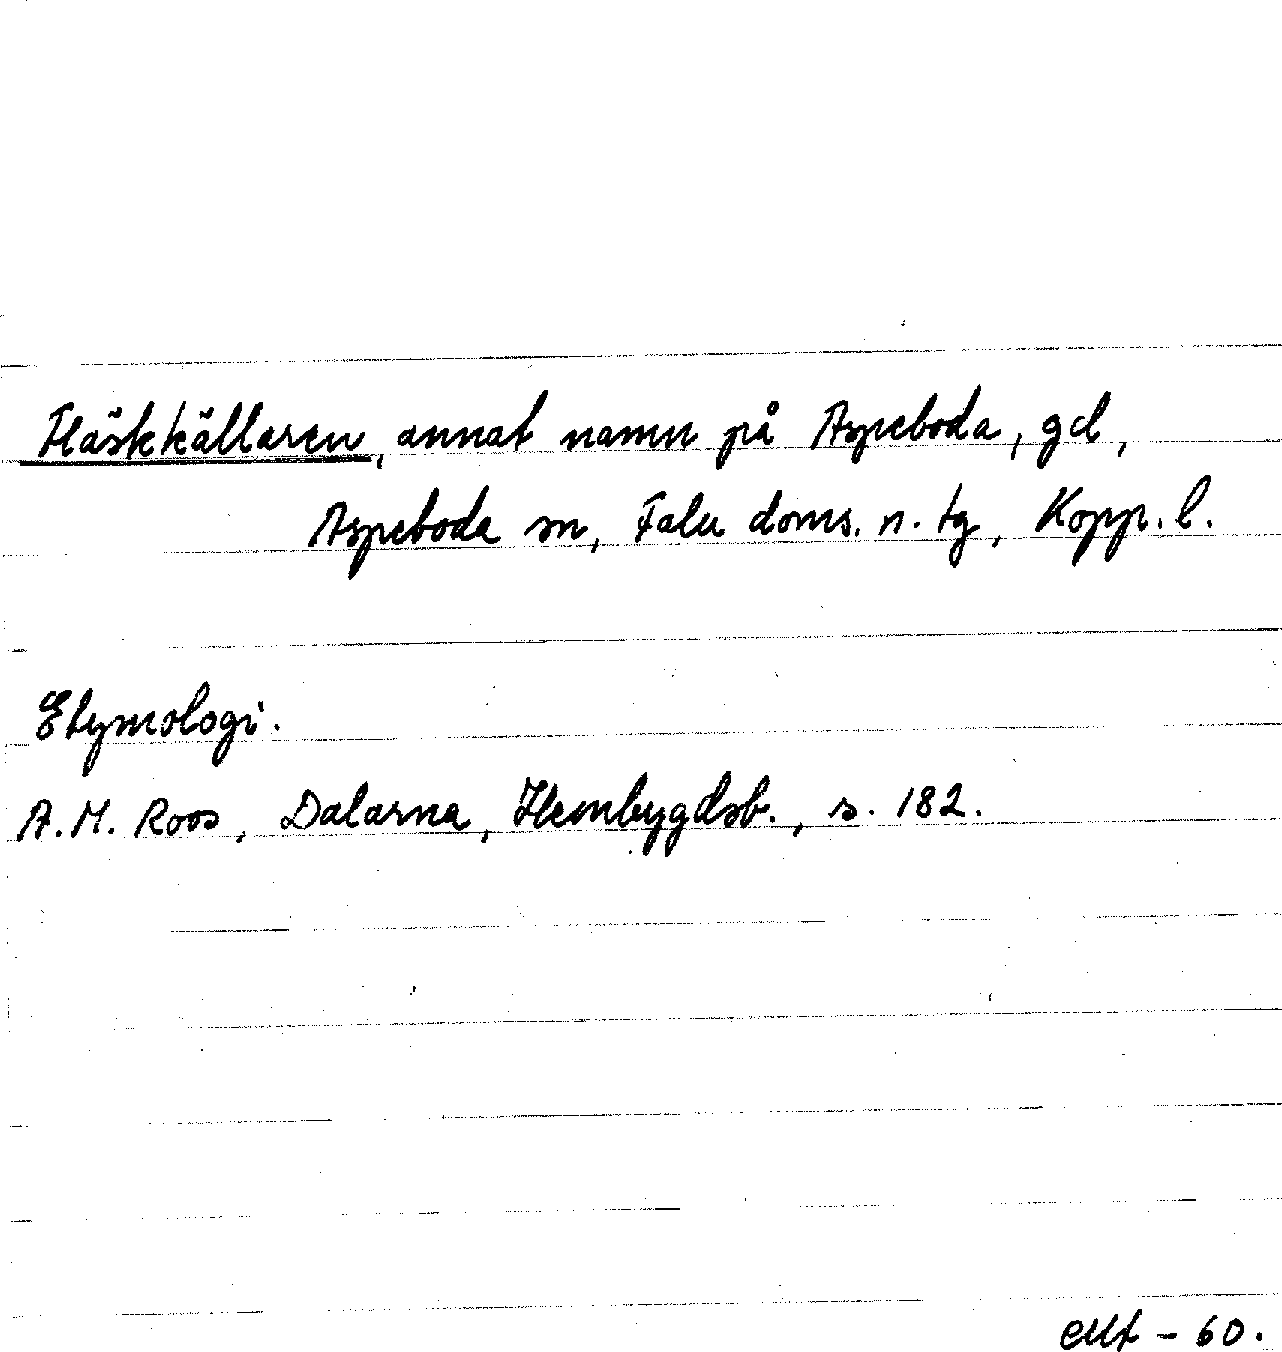 Fläskkällaren, annat namn på Aspeboda, gd,
Aspeboda sn, Falu doms. n. tg, Kopp. l.
Etymologi.
A.M. Roos, Dalarna, Hembygdsb., s. 182.
- 60.